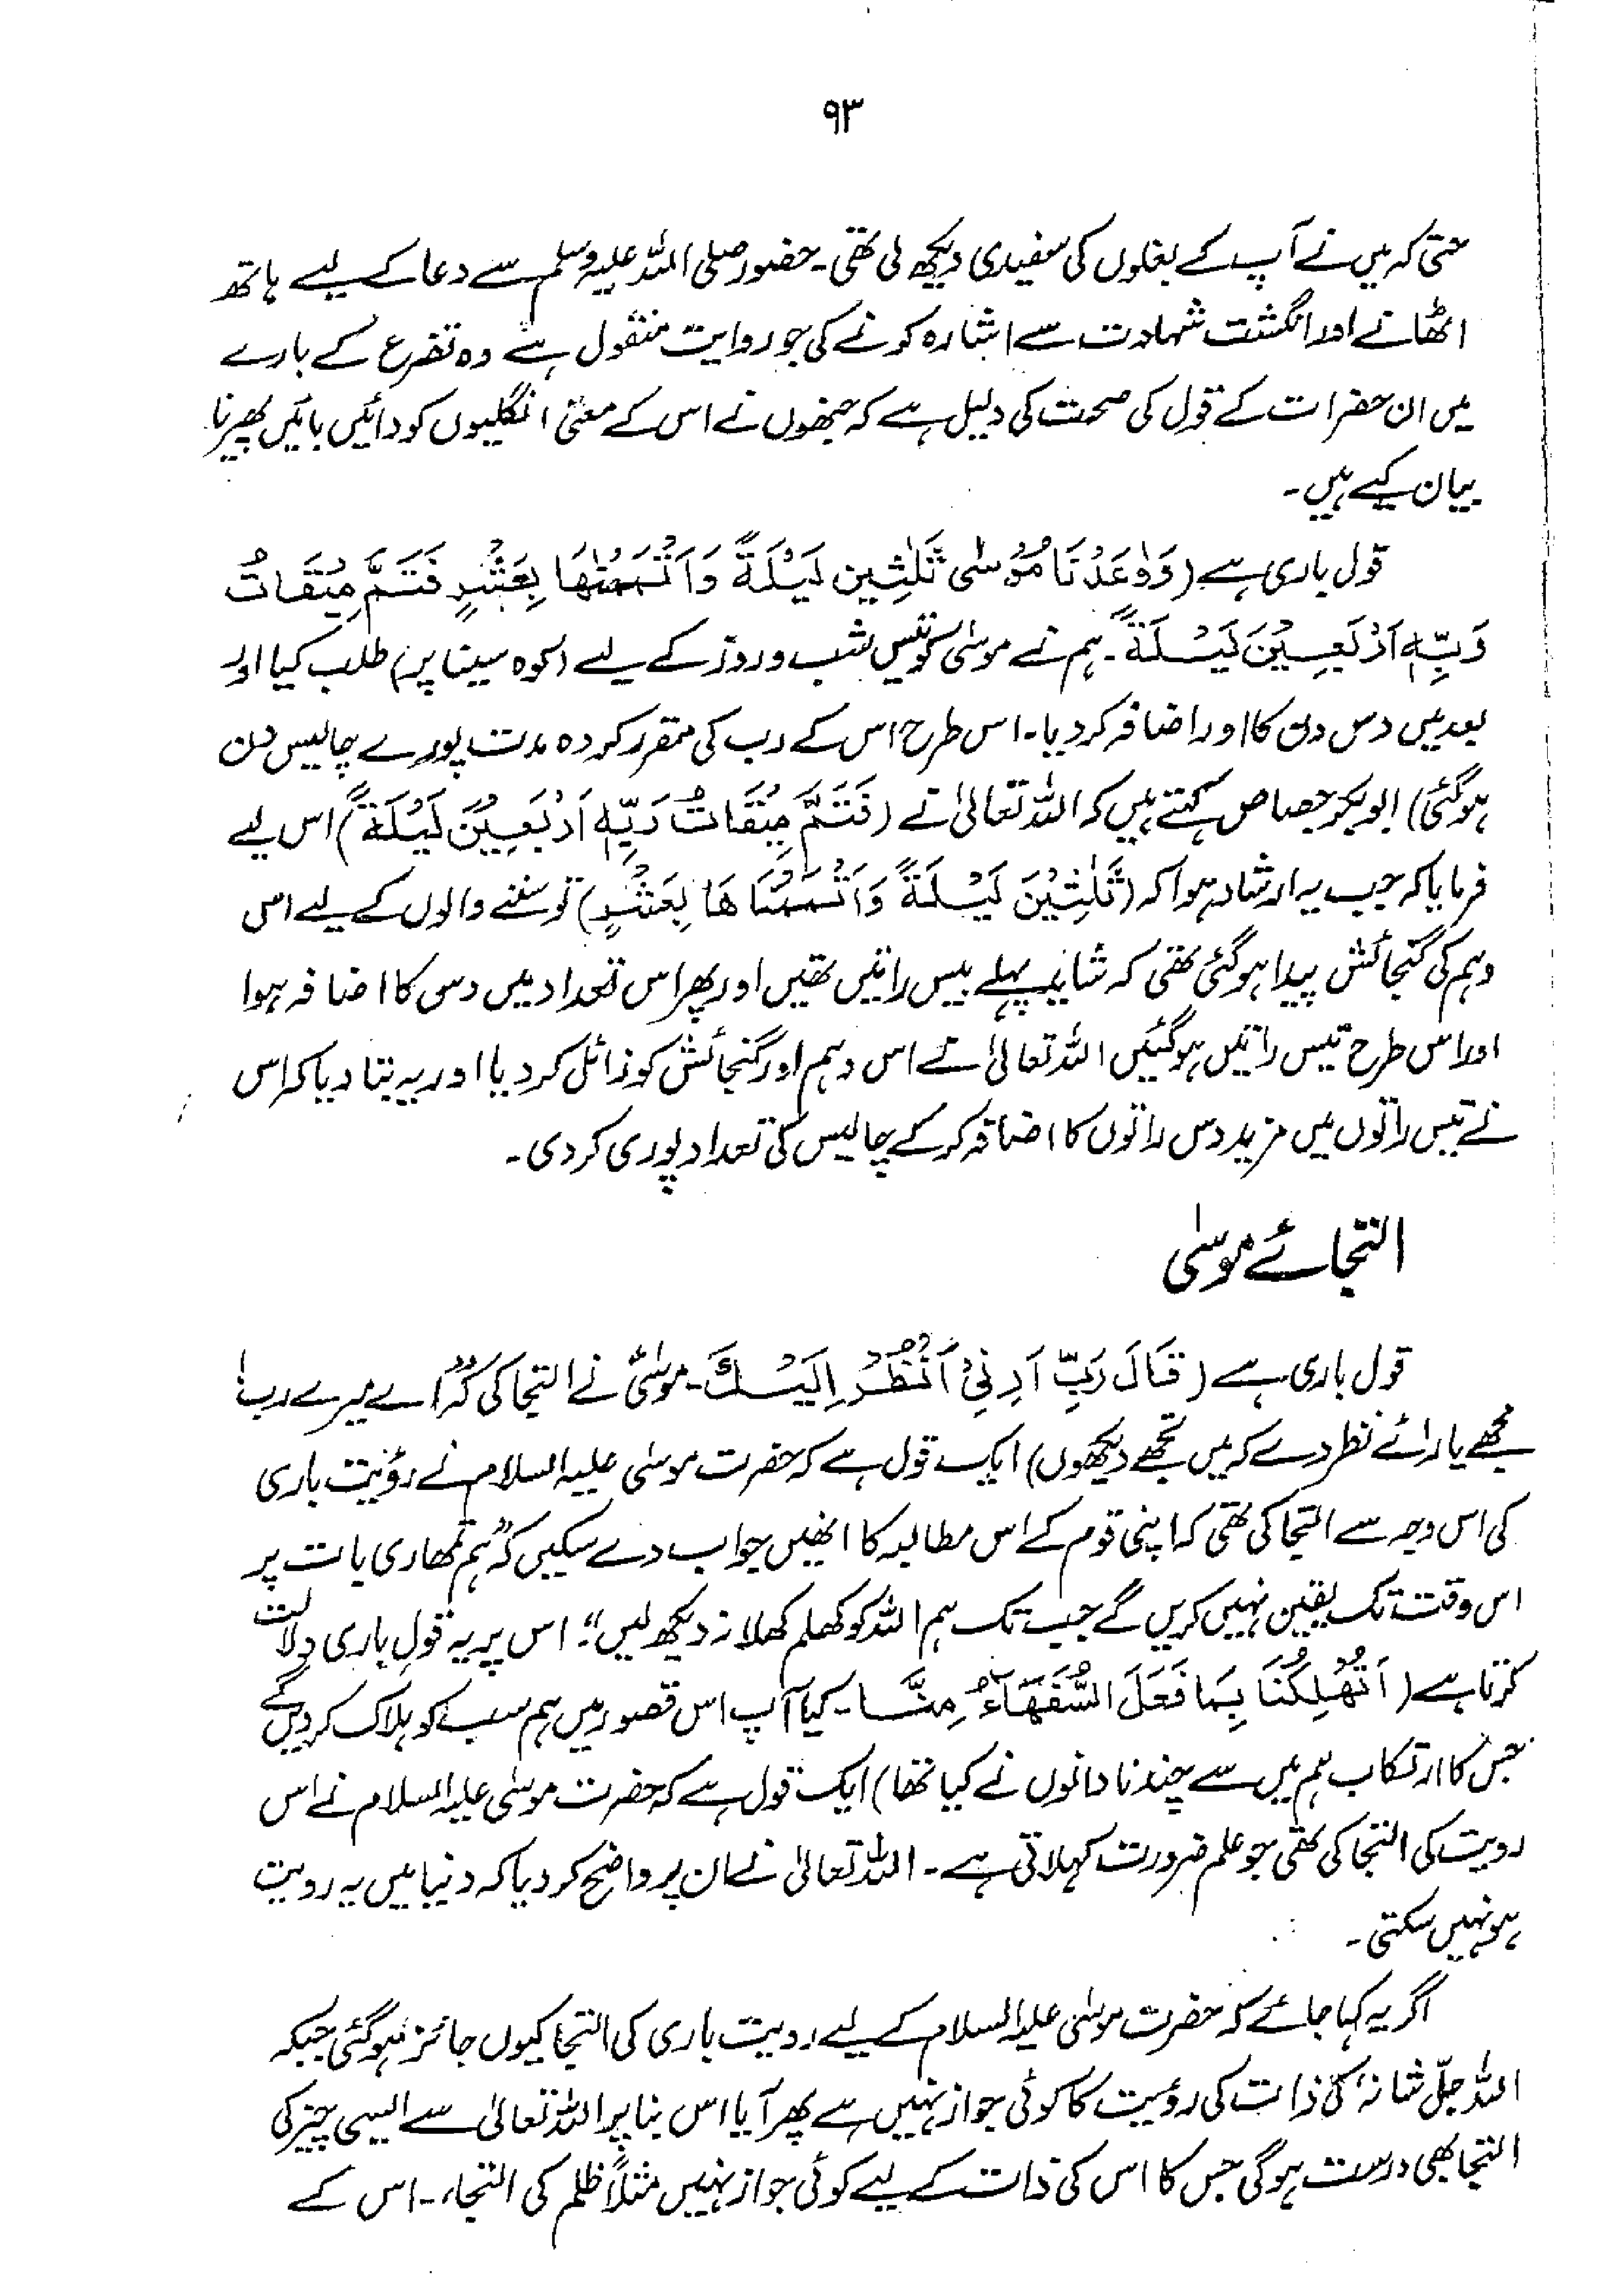 ۹۳
حتی کہ میں نے آپ کے بغلوں کی سفیدی دیکھ لی تھی۔ حضور صلی اللہ علیہ وسلم سے دعا کے لیے ہاتھ
اٹھانے اور انگشت شہادت سے اشارہ کرنے کی جو روایت منقول ہے وہ تضرع کے بارے
میں ان حضرات کے قول کی صحت کی دلیل ہے کہ جنھوں نے اس کے معنی انگلیوں کو دائیں بائیں پھیرنا
بیان کیے ہیں۔
قول باری ہے (وَوٰعَدْنَا مُوْسٰی ثَلٰثِین لَیْلَةً وَاَتْمَمْنٰهَا بِعَشْرٍ فَتَمَّ مِیْقَاتُ
رَبِّهٖ اَرْبَعِیْنَ لَیْلَةً۔ ہم نے موسیٰ کو تیس شب و روز کے لیے (کوہ سینا پر) طلب کیا اور
بعد میں دس دن کا اور اضافہ کردیا۔ اس طرح اس کے رب کی مقرر کردہ مدت پورے چالیس دن
ہوگئی) ابوبکر جصاص کہتے ہیں کہ اللہ تعالیٰ نے (فَتَمَّ مِیْقَاتُ رَبِّهٖ اَرْبَعِیْنَ لَیْلَةً) اس لیے
فرمایا کہ جب یہ ارشاد ہوا کہ (ثَلٰثِیْنَ لَیْلَةً وَاَتْمَمْنَاهَا بِعَشْرٍ) تو سننے والوں کے لیے اس
وہم کی گنجائش پیدا ہوگئی تھی کہ شاید پہلے بیس راتیں تھیں اور پھر اس تعداد میں دس کا اضافہ ہوا
اور اس طرح تیس راتیں ہوگئیں اللہ تعالیٰ نے اس وہم اور گنجائش کو زائل کردیا اور یہ بتا دیا کہ اس
نے تیس راتوں میں مزید دس راتوں کا اضافہ کرکے چالیس کی تعداد پوری کردی۔
التجائے موسیٰ
قول باری ہے (قَالَ رَبِّ اَرِنِیْ اَنْظُرْ اِلَیْكَ۔ موسیٰؑ نے التجا کی کہ "اے میرے رب!
مجھے یارائے نظر دے کہ میں تجھے دیکھوں) ایک قول ہے کہ حضرت موسیٰ علیہ السلام نے رؤیت باری
کی اس وجہ سے التجا کی تھی کہ اپنی قوم کے اس مطالبہ کا انھیں جواب دے سکیں کہ "ہم تمھاری بات پر
اس وقت تک یقین نہیں کریں گے جب تک ہم اللہ کو کھلم کھلا نہ دیکھ لیں"۔ اس پر یہ قولِ باری دلالت
کرتا ہے (اَتُهْلِكُنَا بِمَا فَعَلَ السُّفَهَآءُ مِنَّا۔ کیا آپ اس قصور میں ہم سب کو ہلاک کردیں گے
جس کا ارتکاب ہم میں سے چند نادانوں نے کیا تھا) ایک قول ہے کہ حضرت موسیٰ علیہ السلام نے اس
رویت کی التجا کی تھی جو علم ضرورت کہلاتی ہے۔ اللہ تعالیٰ نے ان پر واضح کردیا کہ دنیا میں یہ رویت
ہو نہیں سکتی۔
اگر یہ کہا جائے کہ حضرت موسیٰ علیہ السلام کے لیے رویت باری کی التجا کیوں جائز ہوگئی جبکہ
اللہ جلّ شانہٗ کی ذات کی رؤیت کا کوئی جواز نہیں ہے پھر آیا اس بنا پر اللہ تعالیٰ سے ایسی چیز کی
التجا بھی درست ہوگی جس کا اس کی ذات کے لیے کوئی جواز نہیں مثلاً ظلم کی التجاء۔ اس کے